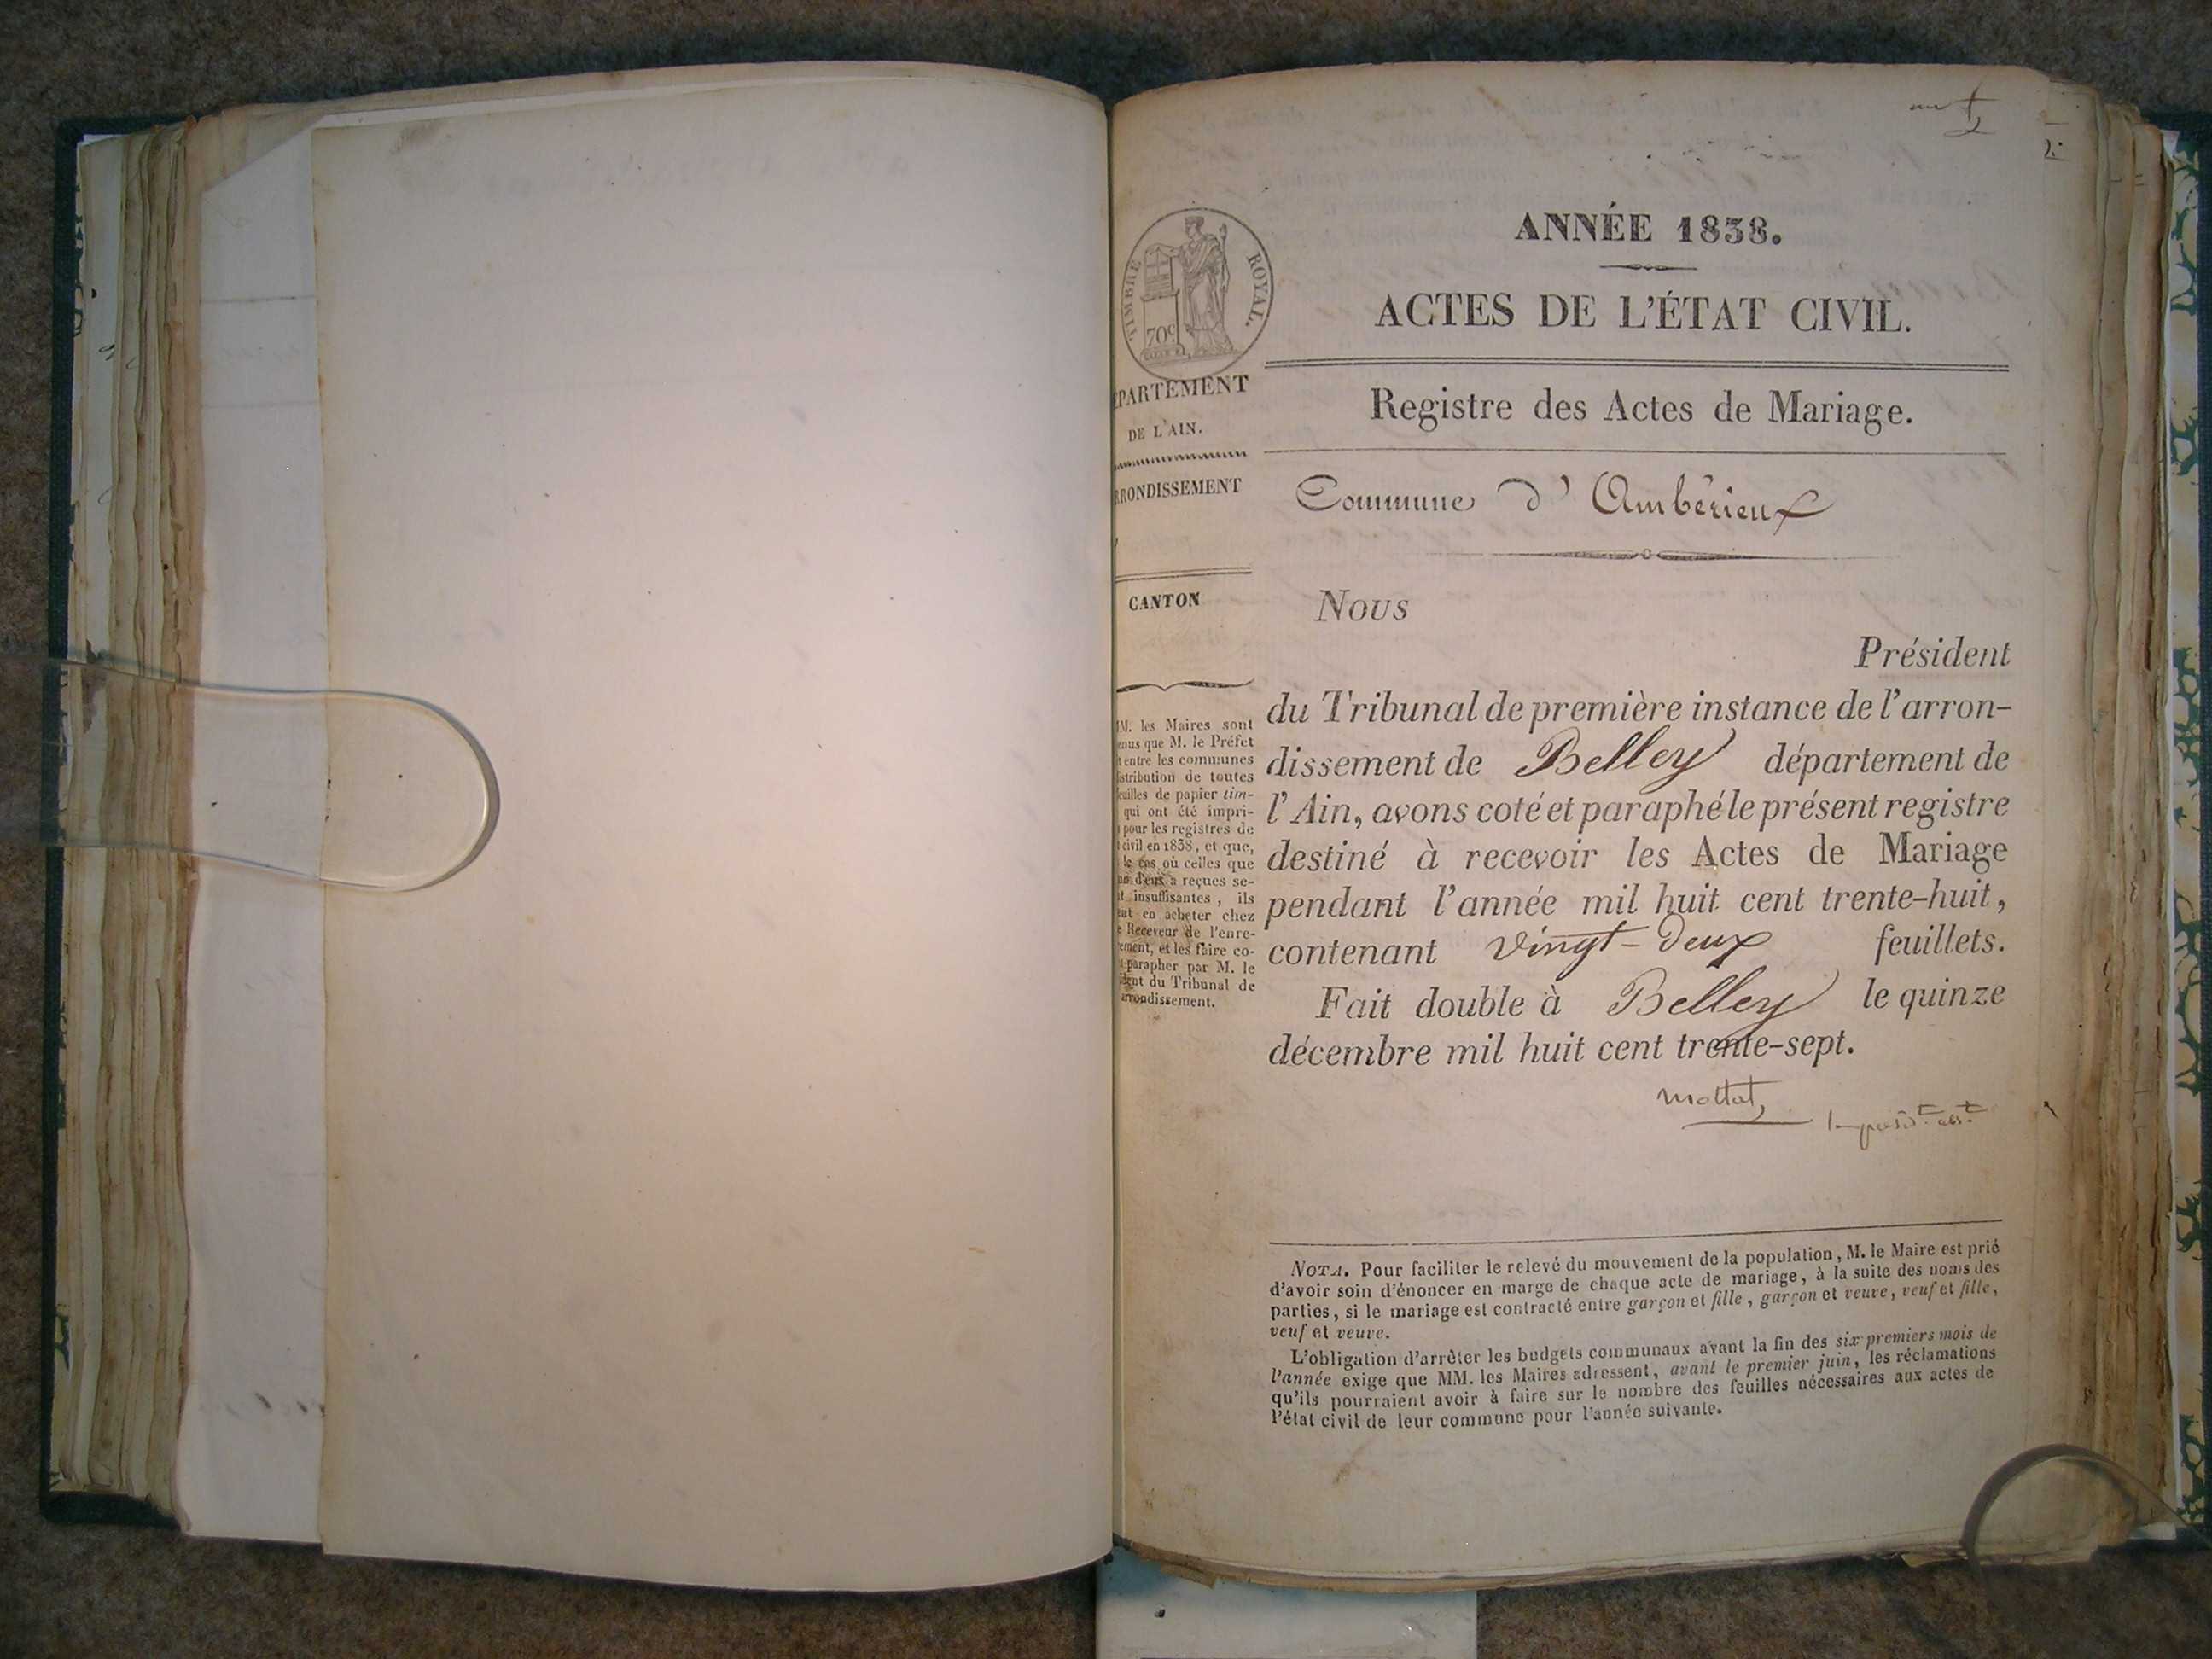 ANNÉE 1838.
ACTES DE L'ÉTAT CIVIL.
Registre des Actes de Mariage.
Commune d'Ambérieux
TIMBRE ROYAL.
70c
PARTEMENT
DE L'AIN.
RONDISSEMENT
CANTON
MM. les Maires sont
enus que M. le Préfet
t entre les communes
istribution de toutes
euilles de papier tim-
qui ont été impri-
pour les registres de
civil en 1838, et que,
le cas où celles que
d'eux a reçues se-
t insuffisantes, ils
en acheter chez
Receveur de l'enre-
ement, et les faire co-
parapher par M. le
du Tribunal de
rrondissement.
Nous
Président
du Tribunal de première instance de l'arron-
dissement de Belley département de
l'Ain, avons coté et paraphé le présent registre
destiné à recevoir les Actes de Mariage
pendant l'année mil huit cent trente-huit,
contenant vingt-deux feuillets.
Fait double à Belley le quinze
décembre mil huit cent trente-sept.
NOTA. Pour faciliter le relevé du mouvement de la population, M. le Maire est prié
d'avoir soin d'énoncer en marge de chaque acte de mariage, à la suite des noms des
parties, si le mariage est contracté entre garçon et fille, garçon et veuve, veuf et fille,
veuf et veuve.
L'obligation d'arrêter les budgets communaux avant la fin des six premiers mois de
l'année exige que MM. les Maires adressent, avant le premier juin, les réclamations
qu'ils pourraient avoir à faire sur le nombre des feuilles nécessaires aux actes de
l'état civil de leur commune pour l'année suivante.